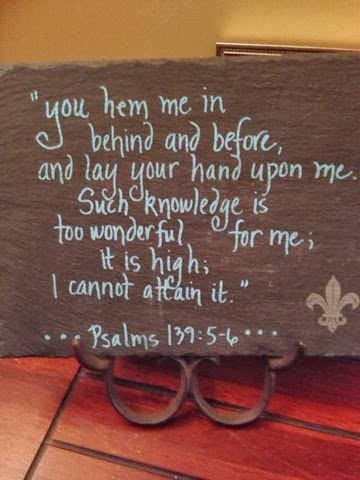 "you hem me in
behind and before,
and lay your hand upon me.
Such knowledge is
too wonderful for me;
it is high;
I cannot attain it."
... Psalms 139:5-6 ...